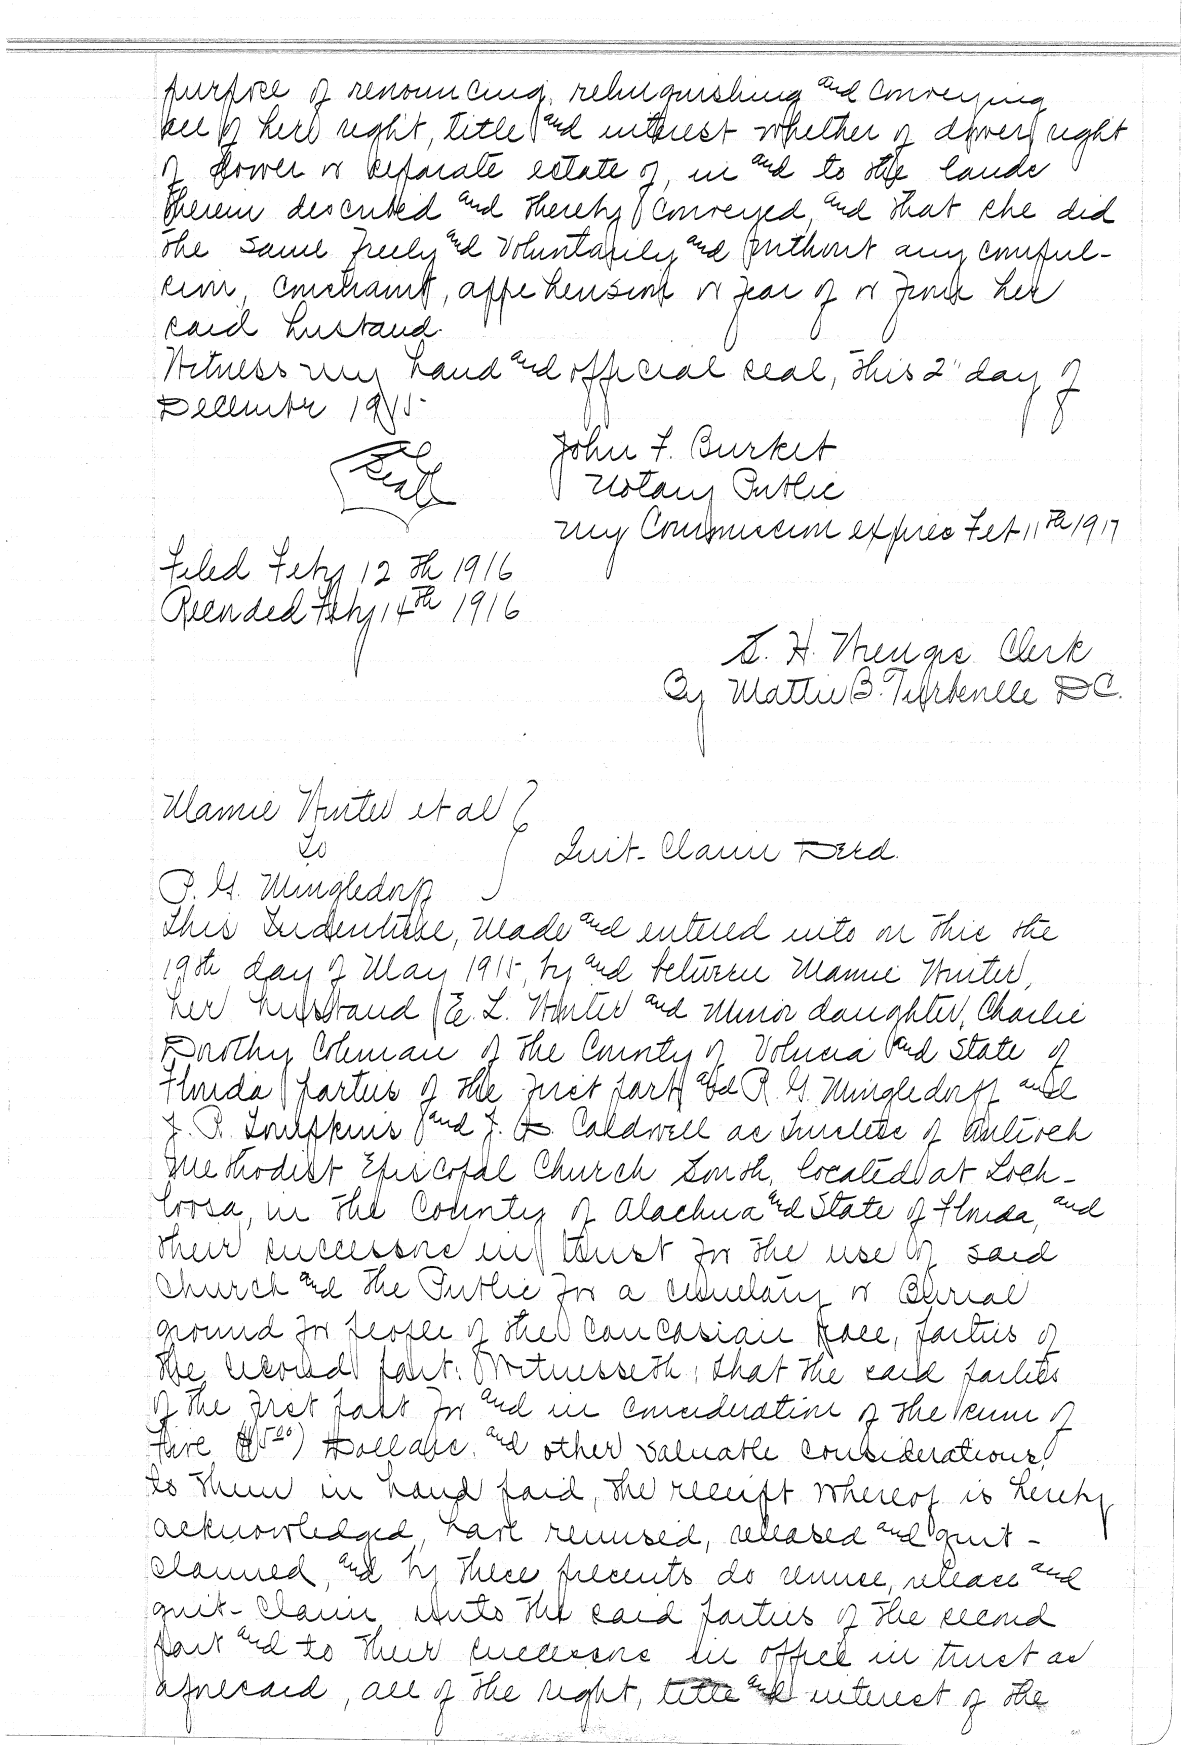 purpose of renouncing, relinquishing and conveying
all of her right, title and interest whether of dower, right
of dower or separate estate of, in and to the lands
therein described and thereby conveyed, and that she did
the same freely and voluntarily and without any compul-
sion, constraint, apprehension or fear of or from her
said husband.
Witness my hand and official seal, this 2" day of
December 1915
Seal
John F. Burket
Notary Public
My Commission expires Feb 11th 1917
Filed Feby 12th 1916
Recorded Feby 14th 1916
S. H. Wienges Clerk
By Mattie B. D.C.
Mamie Winter et al
to
Quit-Claim Deed.
P. G. Mingledorff
This Indenture, Made and entered into on this the
19th day of May 1915, by and between Mamie Winter,
her husband E. L. Winter and Minor daughter, Charlie
Dorothy Coleman of the County of Volusia and State of
Florida parties of the first part and P. G. Mingledorff and
J. P. Tompkins and J. Caldwell as Trustees of Antioch
Methodist Episcopal Church South, located at Loch-
loosa, in the County of Alachua and State of Florida, and
their successors in trust for the use of said
Church and the Public for a cemetary or Burial
ground for people of the Caucasian Race, parties of
the second part: Witnesseth; that the said parties
of the first part for and in consideration of the sum of
Five ($5.00) Dollars, and other valuable considerations,
to them in hand paid, the receipt whereof is hereby
acknowledged, have remised, released and quit-
claimed, and by these presents do remise, release and
quit-claim unto the said parties of the second
part and to their successors in office in trust as
aforesaid, all of the right, title and interest of the